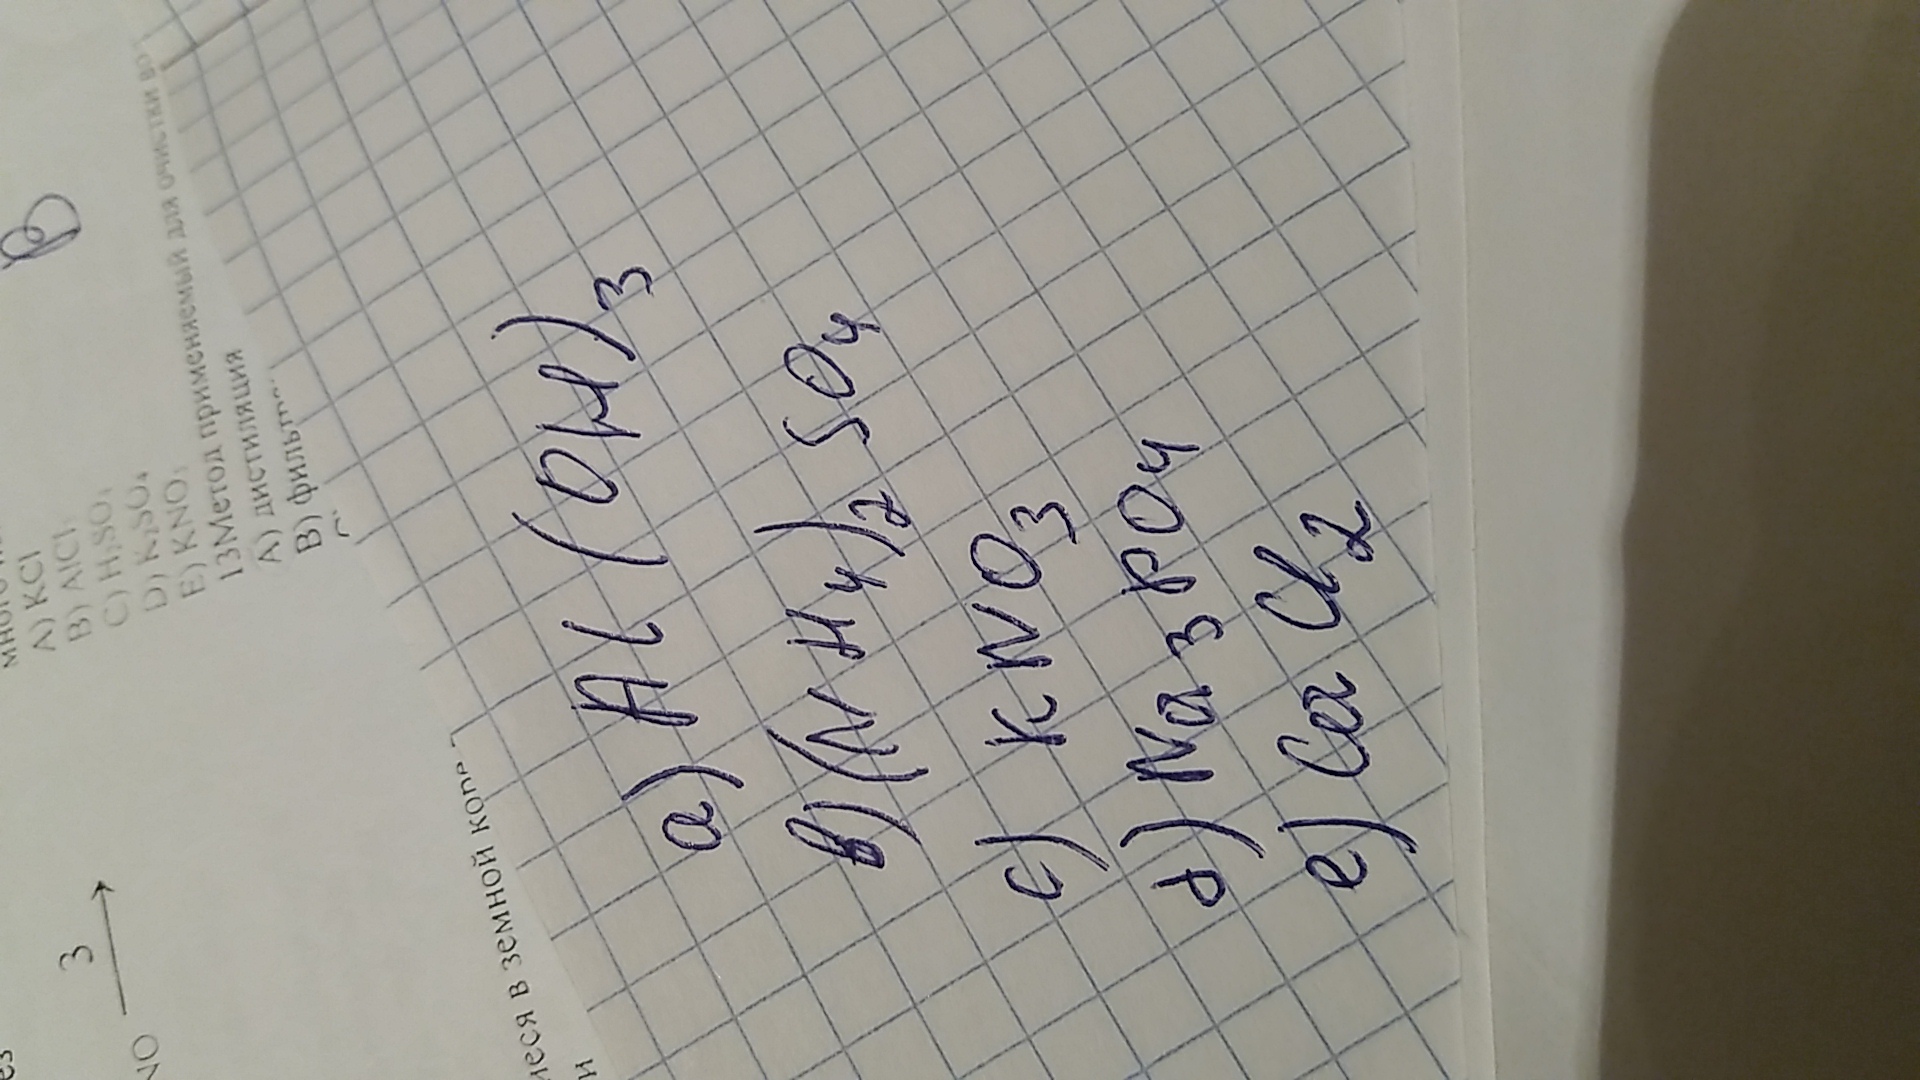 A) KCl
B) AlCl
C) H₂SO₄
D) K₂SO₄
E) KNO₃
13Метод применяемый для очистки
A) дистиляция
B)
B
3
NO →
в земной
и
a) Al(OH)3
b) (NH4)2 SO4
c) KNO3
d) Na3PO4
e) CaCl2